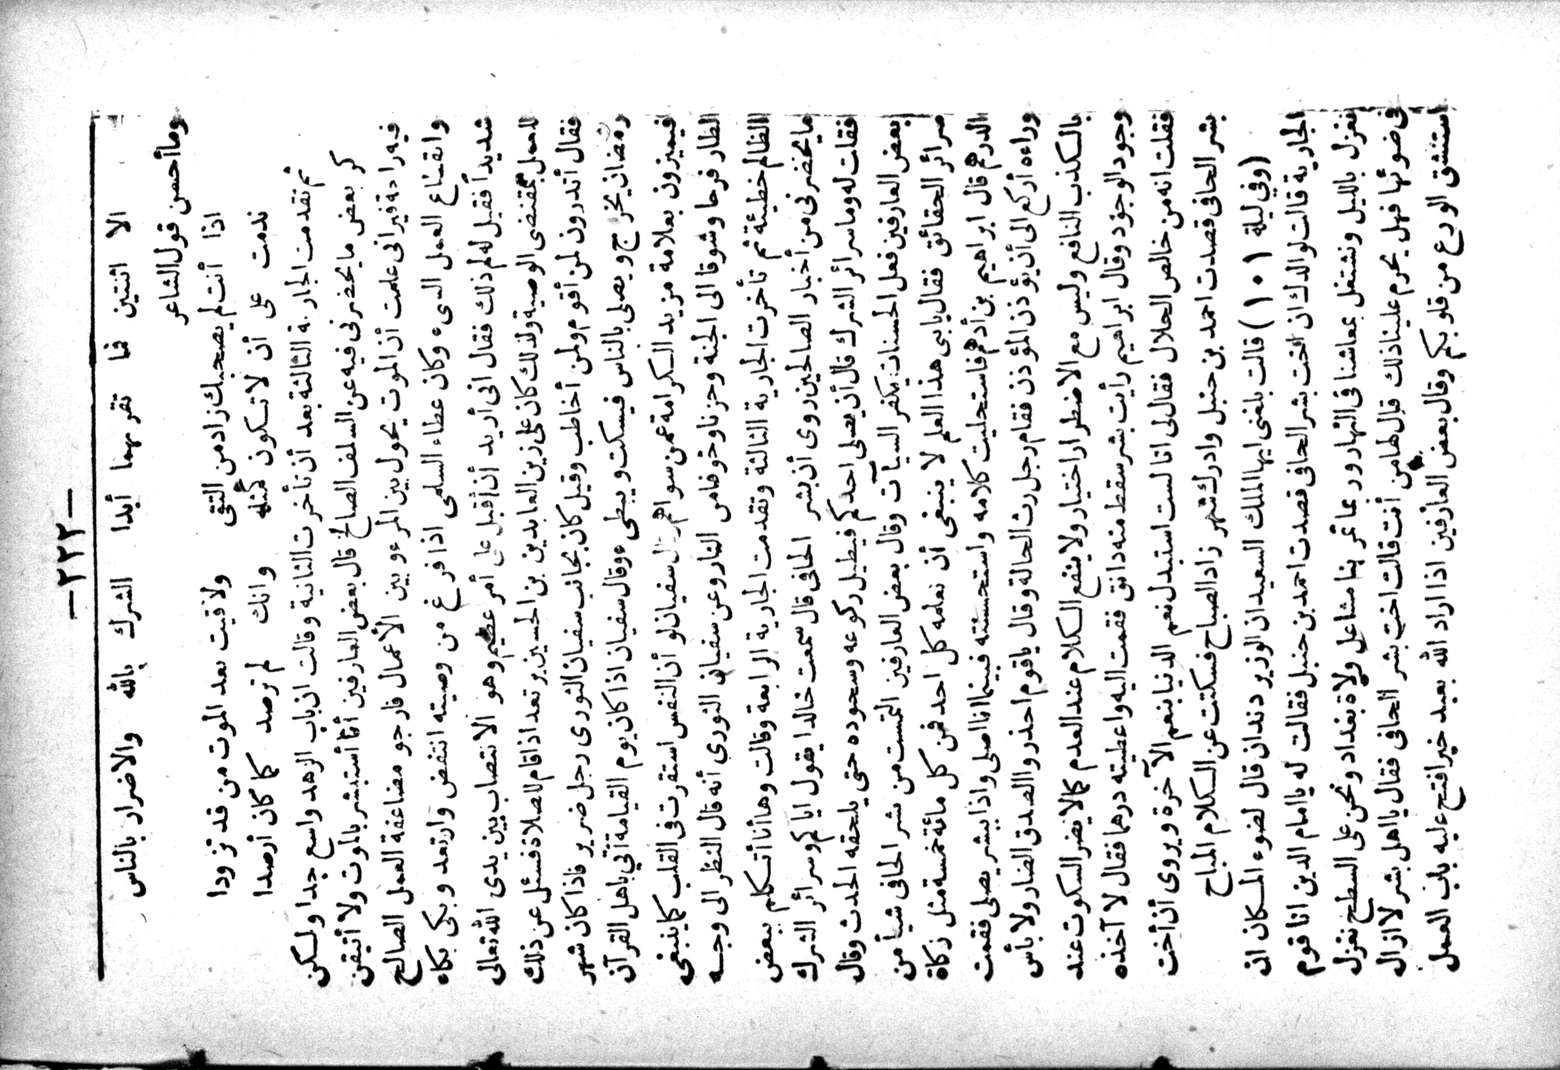 — ٢٢٢ —
الا اثنتين فما تقربهما أبدا الشرك بالله والاضرار بالناس
وما أحسن قول الشاعر
اذا أنت لم يصحبك زاد من التقى ولاقيت بعد الموت من قد تزودا
ندمت على أن لا تكون كمثله وانك لم ترصد كما كان أرصدا
ثم تقدمت الجارية الثالثة بعد أن تأخرت الثانية وقالت ان باب الزهد واسع جدا ولكن
كر بعض ما يحضرنى فيه عن السلف الصالح قال بعض العارفين أنا أستبشر بالموت ولا أتيقن
فيه راحة غير انى علمت أن الموت يحول بين المرء وبين الأعمال فارجو مضاعفة العمل الصالح
وانقطاع العمل السيء وكان عطاء السلمى اذا فرغ من وصيته انتفض وارتعد وبكى بكاء
شديدا فقيل له لم ذلك فقال انى أريد أن أقبل على أمر عظيم وهو الانتصاب بين يدى الله تعالى
للعمل بمقتضى الوصية ولذلك كان على زين العابدين بن الحسين يرتعد اذا قام للصلاة فسئل عن ذلك
فقال أتدرون لمن أقوم ولمن أخاطب وقيل كان بجانب سفيان الثورى رجل ضرير فاذا كان شهر
رمضان يخرج ويصلى بالناس فيسكت ويبطىء وقال سفيان اذا كان يوم القيامة أتى باهل القرآن
فيميزون بعلامة مزيد الكرامة عمن سواهم قال سفيان لو أن النفس استقرت فى القلب كما ينبغى
لطار فرحا وشوقا الى الجنة وحزنا وخوفا من النار وعن سفيان الثورى أنه قال النظر الى وجه
الظالم خطيئة ثم تأخرت الجارية الثالثة وتقدمت الجارية الرابعة وقالت وها أنا أتكلم ببعض
ما يحضرنى من أخبار الصالحين روى أن بشر الحافى قال سمعت خالدا يقول اياكم وسرائر الشرك
فقلت له وما سرائر الشرك قال أن يصلى احدكم فيطيل ركوعه وسجوده حتى يلحقه الحدث وقال
بعض العارفين فعل الحسنات يكفر السيآت وقال بعض العارفين التمست من بشر الحافى شيأ من
سرائر الحقائق فقال يابنى هذا العلم لا ينبغى أن نعلمه كل احد فمن كل مائة خمسة مثل زكاة
الدرهم قال ابراهيم بن أدهم فاستحليت كلامه واستحسنته فبينما انا اصلى واذا ببشر يصلى فقمت
وراءه أركع الى أن يؤذن المؤذن فقام رجل رث الحالة وقال ياقوم احذروا الصدق الضار ولا بأس
بالكذب النافع وليس مع الاضطرار اختيار ولا ينفع الكلام عند العدم كما لا يضر السكوت عند
وجود الوجود وقال ابراهيم رأيت بشر سقط منه دانق فقمت اليه واعطيته درهما فقال لا آخذه
فقلت انه من خالص الحلال فقال لى انا لست استبدل نعم الدنيا بنعم الآخرة ويروى أن أخت
بشر الحافى قصدت احمد بن حنبل وادرك شهر زاد الصباح فسكتت عن الكلام المباح
(وفى ليلة ١٠١) قالت بلغنى ايها الملك السعيد ان الوزير دندان قال لضوء المكان ان
الجارية قالت لوالدك ان اخت بشر الحافى قصدت احمد بن حنبل فقالت له يا امام الدين انا قوم
نغزل بالليل ونشتغل بمعاشنا فى النهار وربما تمر بنا مشاعل ولاة بغداد ونحن على السطح نغزل
فى ضوئها فهل يحرم علينا ذلك قال لها من أنت قالت اخت بشر الحافى فقال يا اهل بشر لا ازال
أستنشق الورع من قلوبكم وقال بعض العارفين اذا اراد الله بعبد خيرا فتح عليه باب العمل